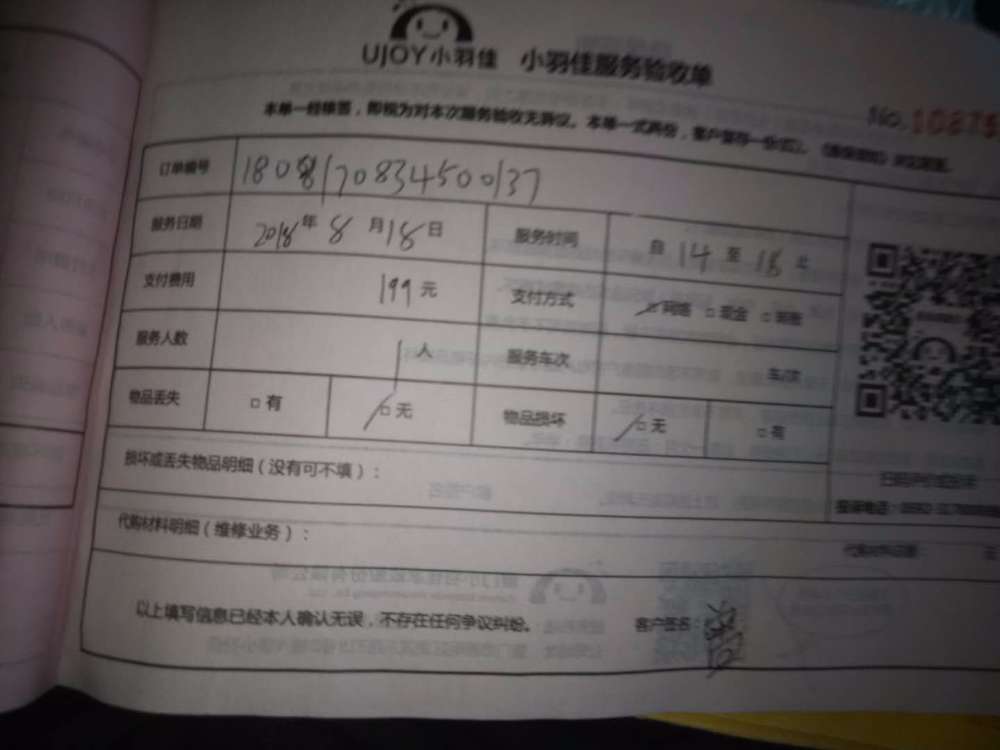 UJOY小羽佳 小羽佳服务验收单
本单一经接签，即视为对本次服务验收无异议。本单一式两份，客户留存一份
No.10875
订单编号 1808170834500137
服务日期 2018年8月18日 服务时间 自14至18止
支付费用 199元 支付方式 □网络 □现金 □转账
服务人数 1人 服务车次 车/次
物品丢失 □有 □无 物品损坏 □无 □有
损坏或丢失物品明细（没有可不填）：
代购材料明细（维修业务）：
以上填写信息已经本人确认无误，不存在任何争议纠纷。 客户签名：